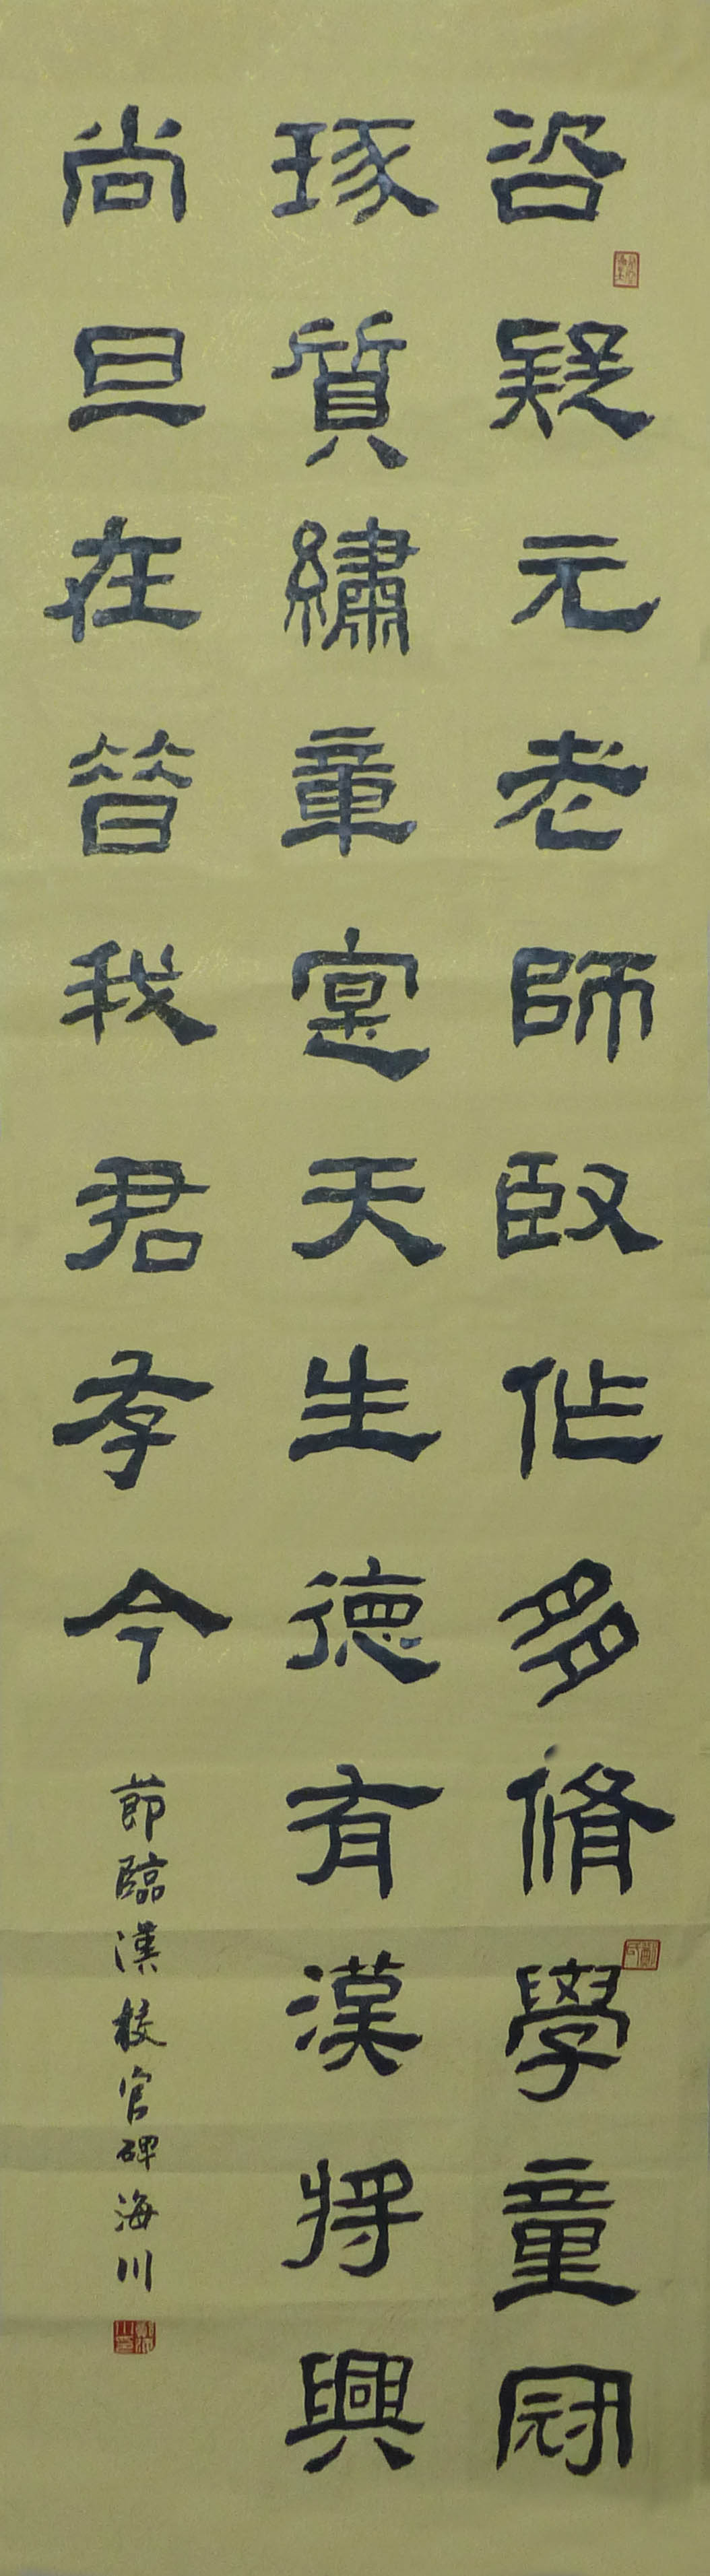 咨疑元老師臤作朋脩學童冠
琢質繡章寔天生德有漢將興
尚旦在昔我君存今
節臨漢校官碑海川